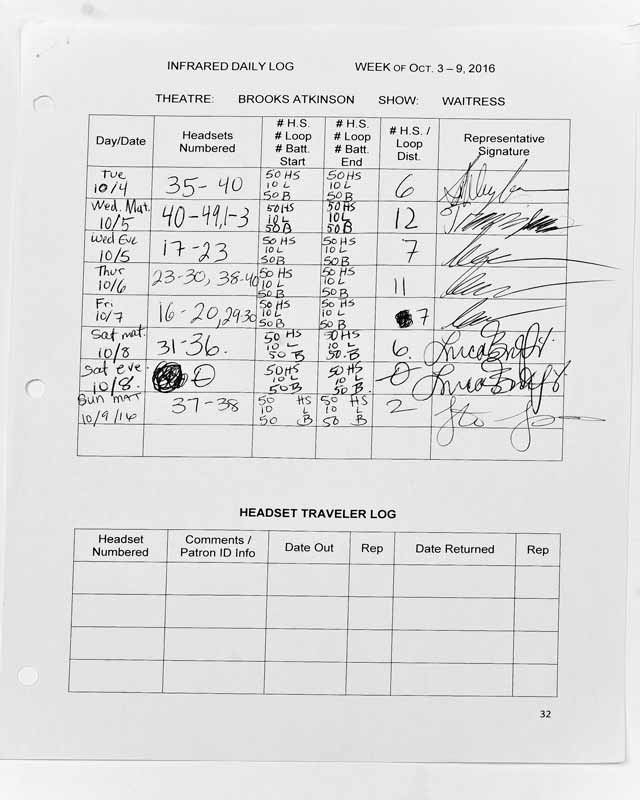 INFRARED DAILY LOG WEEK OF OCT. 3 – 9, 2016
THEATRE: BROOKS ATKINSON SHOW: WAITRESS
Day/Date Headsets Numbered # H.S. # Loop # Batt. Start # H.S. # Loop # Batt. End # H.S. / Loop Dist. Representative Signature
Tue 10/4 35-40 50 HS 10 L 50 B 50 HS 10 L 50 B 6
Wed. Mat. 10/5 40-49,1-3 50 HS 10 L 50 B 50 HS 10 L 50 B 12
Wed Eve 10/5 17-23 50 HS 10 L 50 B 50 HS 10 L 50 B 7
Thur 10/6 23-30, 38-40 50 HS 10 L 50 B 50 HS 10 L 50 B 11
Fri 10/7 16-20, 29-30 50 HS 10 L 50 B 50 HS 10 L 50 B 7
Sat mat. 10/8 31-36. 50 HS 10 L 50 B 50 HS 10 L 50 B 6.
Sat eve. 10/8. 0 50 HS 10 L 50 B 50 HS 10 L 50 B. 0
Sun mat 10/9/16 37-38 50 HS 10 L 50 B 50 HS 10 L 50 B 2
HEADSET TRAVELER LOG
Headset Numbered Comments / Patron ID Info Date Out Rep Date Returned Rep
32